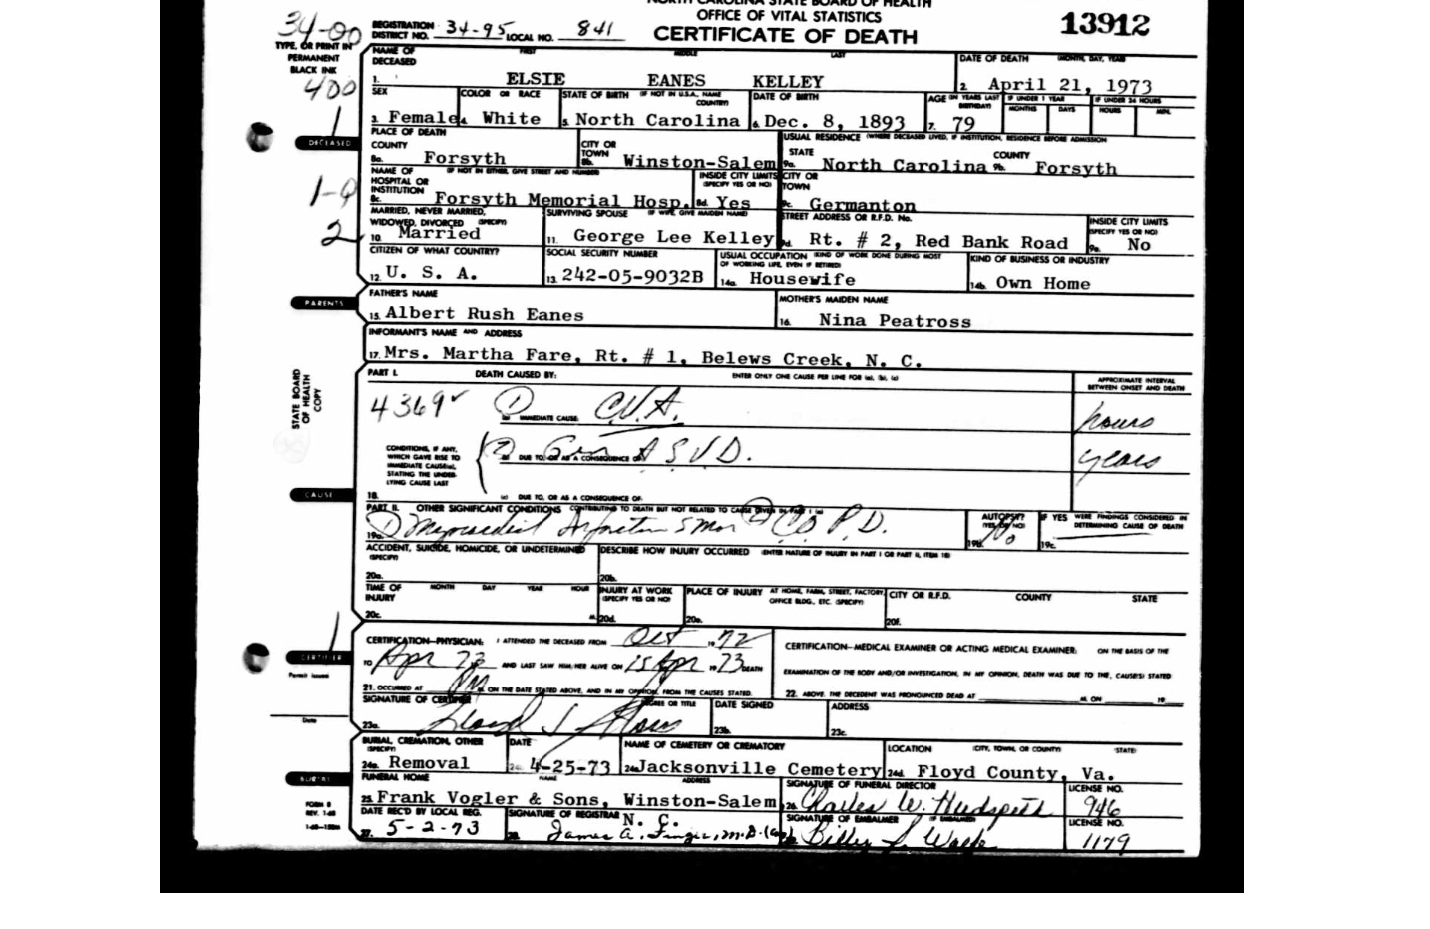 NORTH CAROLINA STATE BOARD OF HEALTH
OFFICE OF VITAL STATISTICS
CERTIFICATE OF DEATH
13912
34-00
TYPE, OR PRINT IN
PERMANENT
BLACK INK
400
REGISTRATION
DISTRICT NO. 34-95 LOCAL NO. 841
NAME OF DECEASED FIRST MIDDLE LAST
1. ELSIE EANES KELLEY
DATE OF DEATH (MONTH, DAY, YEAR)
2. April 21, 1973
SEX
3. Female
COLOR OR RACE
4. White
STATE OF BIRTH (IF NOT IN U.S.A., NAME COUNTRY)
5. North Carolina
DATE OF BIRTH
6. Dec. 8, 1893
AGE (IN YEARS LAST BIRTHDAY)
7. 79
IF UNDER 1 YEAR
MONTHS DAYS
IF UNDER 24 HOURS
HOURS MIN.
1
DECEASED
PLACE OF DEATH
COUNTY
8a. Forsyth
CITY OR TOWN
8b. Winston-Salem
USUAL RESIDENCE (WHERE DECEASED LIVED, IF INSTITUTION, RESIDENCE BEFORE ADMISSION
STATE
9a. North Carolina
COUNTY
9b. Forsyth
1-9
2
NAME OF HOSPITAL OR INSTITUTION (IF NOT IN EITHER, GIVE STREET AND NUMBER)
8c. Forsyth Memorial Hosp.
INSIDE CITY LIMITS (SPECIFY YES OR NO)
8d. Yes
CITY OR TOWN
9c. Germanton
MARRIED, NEVER MARRIED, WIDOWED, DIVORCED (SPECIFY)
10. Married
SURVIVING SPOUSE (IF WIFE, GIVE MAIDEN NAME)
11. George Lee Kelley
STREET ADDRESS OR R.F.D. No.
9d. Rt. # 2, Red Bank Road
INSIDE CITY LIMITS (SPECIFY YES OR NO)
9e. No
CITIZEN OF WHAT COUNTRY?
12. U. S. A.
SOCIAL SECURITY NUMBER
13. 242-05-9032B
USUAL OCCUPATION (KIND OF WORK DONE DURING MOST OF WORKING LIFE, EVEN IF RETIRED)
14a. Housewife
KIND OF BUSINESS OR INDUSTRY
14b. Own Home
PARENTS
FATHER'S NAME
15. Albert Rush Eanes
MOTHER'S MAIDEN NAME
16. Nina Peatross
INFORMANT'S NAME AND ADDRESS
17. Mrs. Martha Fare, Rt. # 1, Belews Creek, N. C.
STATE BOARD OF HEALTH COPY
PART I. DEATH CAUSED BY: ENTER ONLY ONE CAUSE PER LINE FOR (a), (b), (c)
APPROXIMATE INTERVAL BETWEEN ONSET AND DEATH
4369
(a) IMMEDIATE CAUSE 1 C.V.A. hours
CONDITIONS, IF ANY, WHICH GAVE RISE TO IMMEDIATE CAUSE(a), STATING THE UNDERLYING CAUSE LAST
(b) DUE TO, OR AS A CONSEQUENCE OF 2 Gen A.S.V.D. years
CAUSE
18. (c) DUE TO, OR AS A CONSEQUENCE OF:
PART II. OTHER SIGNIFICANT CONDITIONS CONTRIBUTING TO DEATH BUT NOT RELATED TO CAUSE GIVEN IN PART I (a)
19a. 1 Myocardial Infarction 5 mos 2 C.O.P.D.
AUTOPSY? (YES OR NO)
19b. No
IF YES WERE FINDINGS CONSIDERED IN DETERMINING CAUSE OF DEATH
19c.
ACCIDENT, SUICIDE, HOMICIDE, OR UNDETERMINED (SPECIFY)
20a.
DESCRIBE HOW INJURY OCCURRED (ENTER NATURE OF INJURY IN PART I OR PART II, ITEM 18)
20b.
TIME OF INJURY MONTH DAY YEAR HOUR
20c. M.
INJURY AT WORK (SPECIFY YES OR NO)
20d.
PLACE OF INJURY AT HOME, FARM, STREET, FACTORY, OFFICE BLDG., ETC. (SPECIFY)
20e.
CITY OR R.F.D. COUNTY STATE
20f.
1
CERTIFIER
Permit issued
Date
CERTIFICATION—PHYSICIAN: I ATTENDED THE DECEASED FROM Oct 1972
TO Apr 73 AND LAST SAW HIM/HER ALIVE ON 15 Apr 1973 DEATH
21. OCCURRED AT M. ON THE DATE STATED ABOVE, AND IN MY OPINION, FROM THE CAUSES STATED.
CERTIFICATION—MEDICAL EXAMINER OR ACTING MEDICAL EXAMINER: ON THE BASIS OF THE
EXAMINATION OF THE BODY AND/OR INVESTIGATION, IN MY OPINION, DEATH WAS DUE TO THE, CAUSE(S) STATED
22. ABOVE. THE DECEDENT WAS PRONOUNCED DEAD AT M. ON 19
SIGNATURE OF CERTIFIER DEGREE OR TITLE
23a.
DATE SIGNED
23b.
ADDRESS
23c.
BURIAL
BURIAL, CREMATION, OTHER (SPECIFY)
24a. Removal
DATE
4-25-73
NAME OF CEMETERY OR CREMATORY
Jacksonville Cemetery
LOCATION (CITY, TOWN, OR COUNTY) (STATE)
24d. Floyd County, Va.
FORM 8
REV. 1-68
FUNERAL HOME NAME ADDRESS
25. Frank Vogler & Sons, Winston-Salem
N. C.
SIGNATURE OF FUNERAL DIRECTOR
26. Charles W. Hudspeth
LICENSE NO.
946
DATE REC'D BY LOCAL REG.
27. 5-2-73
SIGNATURE OF REGISTRAR
28. James A. Finger, M.D.
SIGNATURE OF EMBALMER (IF EMBALMED)
Billy
LICENSE NO.
1179